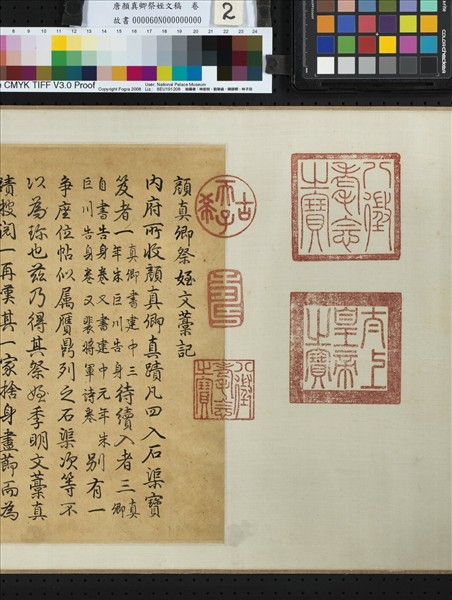 唐顏真卿祭姪文稿 卷
故書 000060N000000000
2
CMYK TIFF V3.0 Proof
Copyright Fogra 2008
User: National Palace Museum
Liz.: 6EU101208
八徵耄念之寶
太上皇帝之寶
古希天子
壽
八徵耄念之寶
顏真卿祭姪文藁記
内府所收顏真卿真蹟凡四入石渠寶
笈者一真卿書建中三年朱巨川告身待續入者三真卿
自書告身卷又書建中元年朱巨川告身卷又裴將軍詩卷别有一
爭座位帖似属贋鼎列之石渠次等不
以為珍也兹乃得其祭姪季明文藁真
蹟披閲一再嘆其一家捨身盡節而為